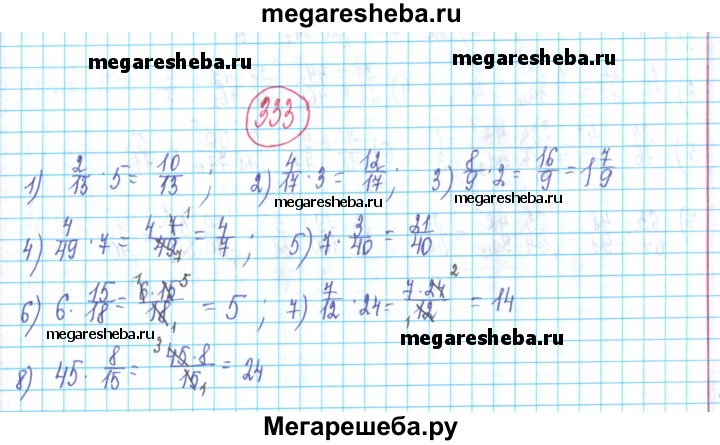 megaresheba.ru
megaresheba.ru megaresheba.ru
333
1) 2/13 · 5 = 10/13 ; 2) 4/17 · 3 = 12/17 ; 3) 8/9 · 2 = 16/9 = 1 7/9
megaresheba.ru megaresheba.ru
4) 4/49 · 7 = 4·7/49 = 4/7 ; 5) 7 · 3/40 = 21/40
6) 6 · 15/18 = 6·15/18 = 5 ; 7) 7/12 · 24 = 7·24/12 = 14
megaresheba.ru megaresheba.ru
8) 45 · 8/15 = 45·8/15 = 24
Мегарешеба.ру